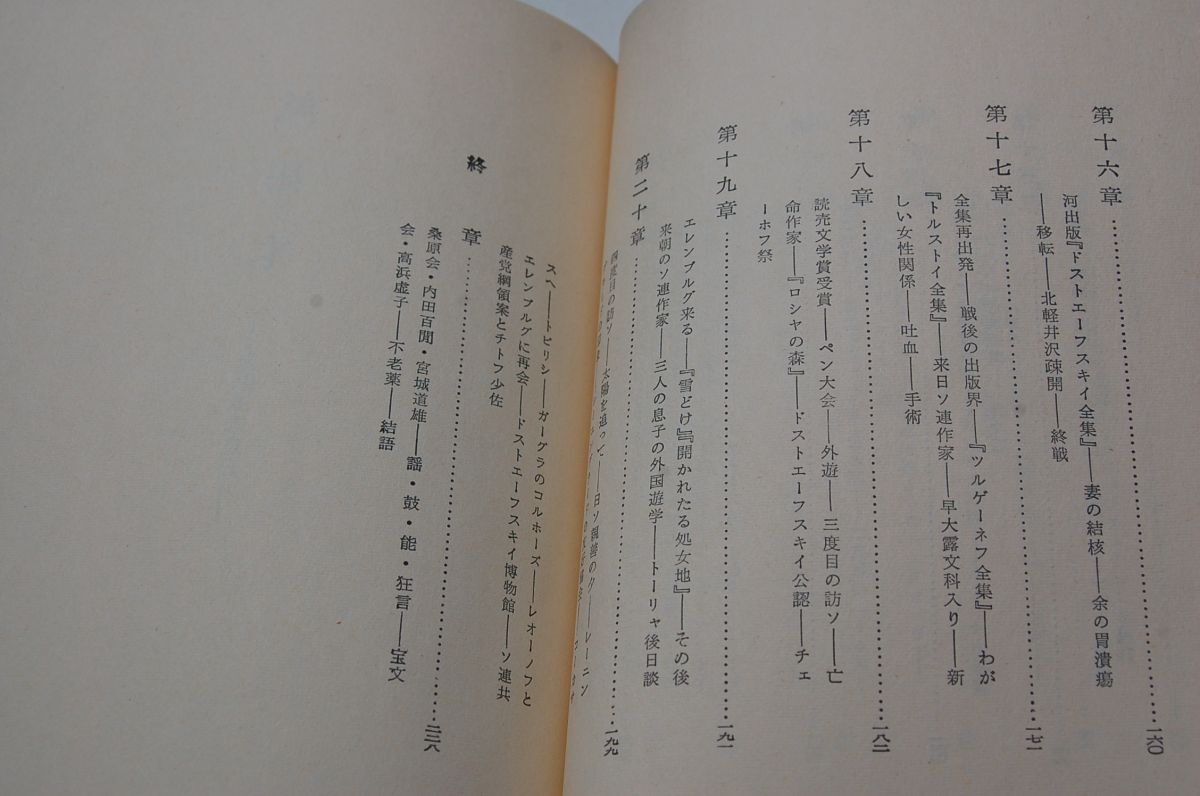 第十六章……………………一六〇
河出版『ドストエーフスキイ全集』――妻の結核――余の胃潰瘍
――移転――北軽井沢疎開――終戦
第十七章……………………一七一
全集再出発――戦後の出版界――『ツルゲーネフ全集』――わが
『トルストイ全集』――来日ソ連作家――早大露文科入り――新
しい女性関係――吐血――手術
第十八章……………………一八二
読売文学賞受賞――ペン大会――外遊――三度目の訪ソ――亡
命作家――『ロシヤの森』――ドストエーフスキイ公認――チェ
ーホフ祭
第十九章……………………一九一
エレンブルグ来る――『雪どけ』『開かれたる処女地』――その後
来朝のソ連作家――三人の息子の外国遊学――トーリャ後日談
第二十章……………………一九九
四度目の訪ソ――太陽を追って――日ソ親善の夕――レーニン
スヘ――トビリシ――ガーグラのコルホーズ――レオーノフと
エレンブルグに再会――ドストエーフスキイ博物館――ソ連共
産党綱領案とチトフ少佐
終章……………………二三八
桑原会・内田百閒・宮城道雄――謡・鼓・能・狂言――宝文
会・高浜虚子――不老薬――結語